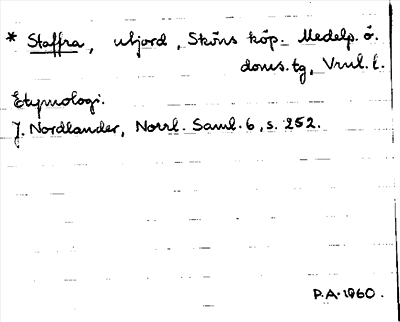 * Staffra, utjord, Sköns köp. Medelp. ö.
doms. tg, Vnl. l.
Etymologi.
J. Nordlander, Norrl. Saml. 6, s. 252.
P.A. 1960.